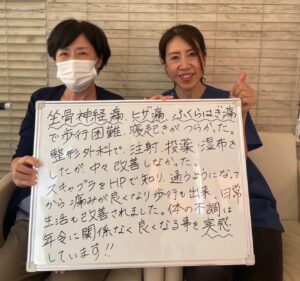 坐骨神経痛、ヒザ痛、ふくらはぎ痛
で歩行困難、寝起きがつらかった。
整形外科で、注射、投薬、湿布を
したが中々改善しなかった。
スキャプラをHPで知り、通うようになって
から痛みが良くなり歩行も出来、日常
生活も改善されました。体の不調は
年令に関係なく良くなる事を実感
しています!!